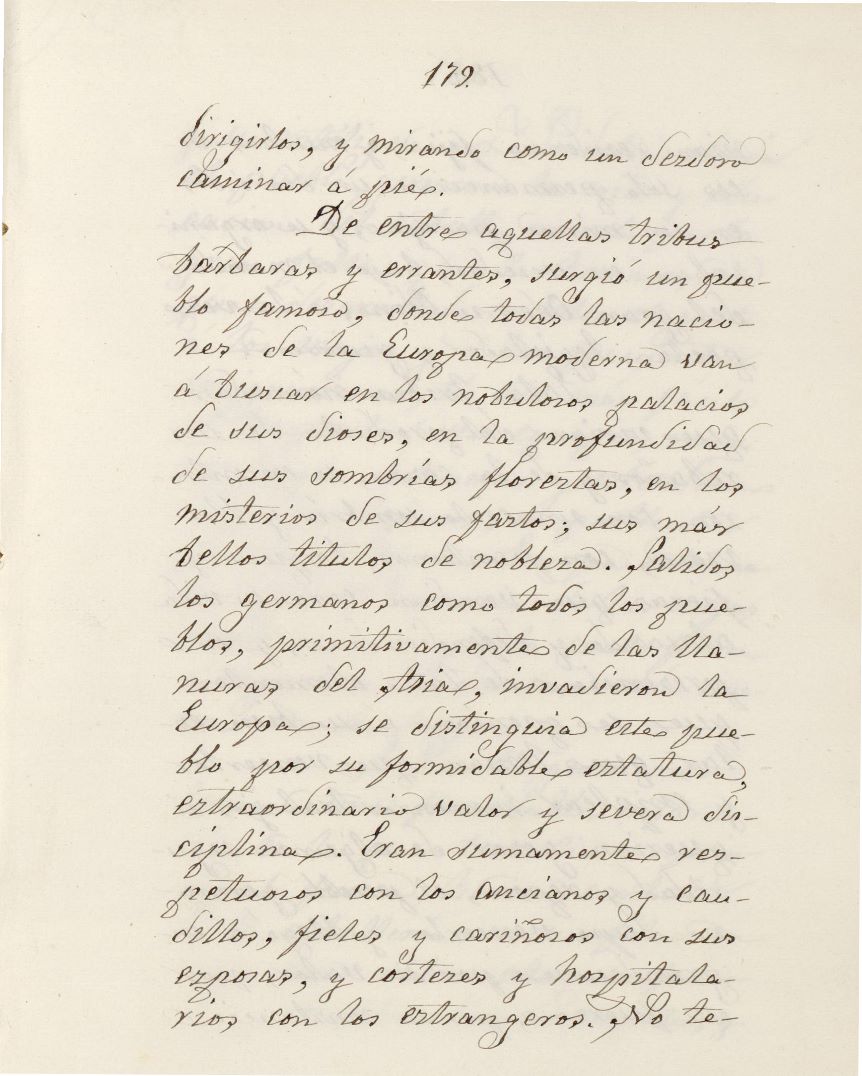 179.
dirigirlos, y mirando como un desdoro
caminar á pié.
De entre aquellas tribus
bárbaras y errantes, surgió un pue-
blo famoso, donde todas las nacio-
nes de la Europa moderna van
á buscar en los nobulosos palacios
de sus dioses, en la profundidad
de sus sombrías florestas, en los
misterios de sus fastos; sus más
bellos titulos de nobleza. Salidos
los germanos como todos los pue-
blos, primitivamente de las lla-
nuras del Asia, invadieron la
Europa; se distinguia este pue-
blo por su formidable estatura,
estraordinario valor y severa dis-
ciplina. Eran sumamente res-
petuosos con los ancianos y cau-
dillos, fieles y cariñosos con sus
esposas, y corteses y hospitala-
rios con los estrangeros. No te-